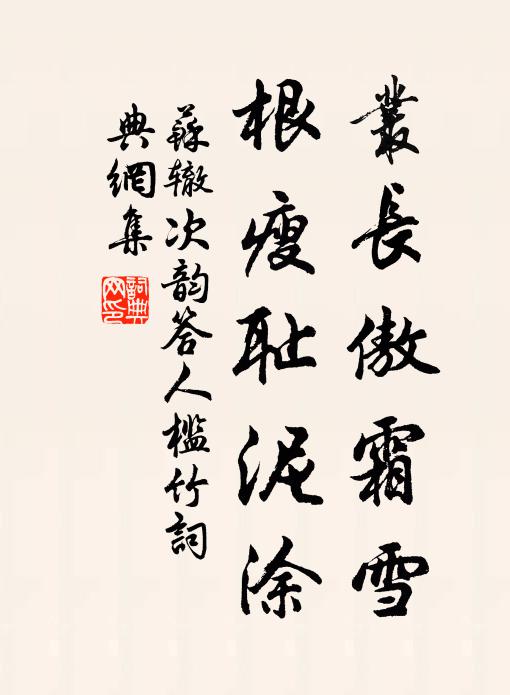 叢長傲霜雪
根瘦耻泥涂
蘇辙次韵答人檻竹詞
典網集
詞典
网印